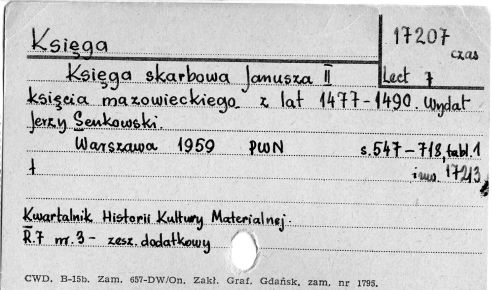 Księga
17207
czas
Lect 7
Księga skarbowa Janusza II
księcia mazowieckiego z lat 1477-1490. Wydał
Jerzy Senkowski.
Warszawa 1959 PWN s. 547-718, tabl. 1
inw. 17213
Kwartalnik Historii Kultury Materialnej.
R. 7 nr. 3 - zesz. dodatkowy
CWD. B-15b. Zam. 657-DW/On. Zakł. Graf. Gdańsk, zam. nr 1795.